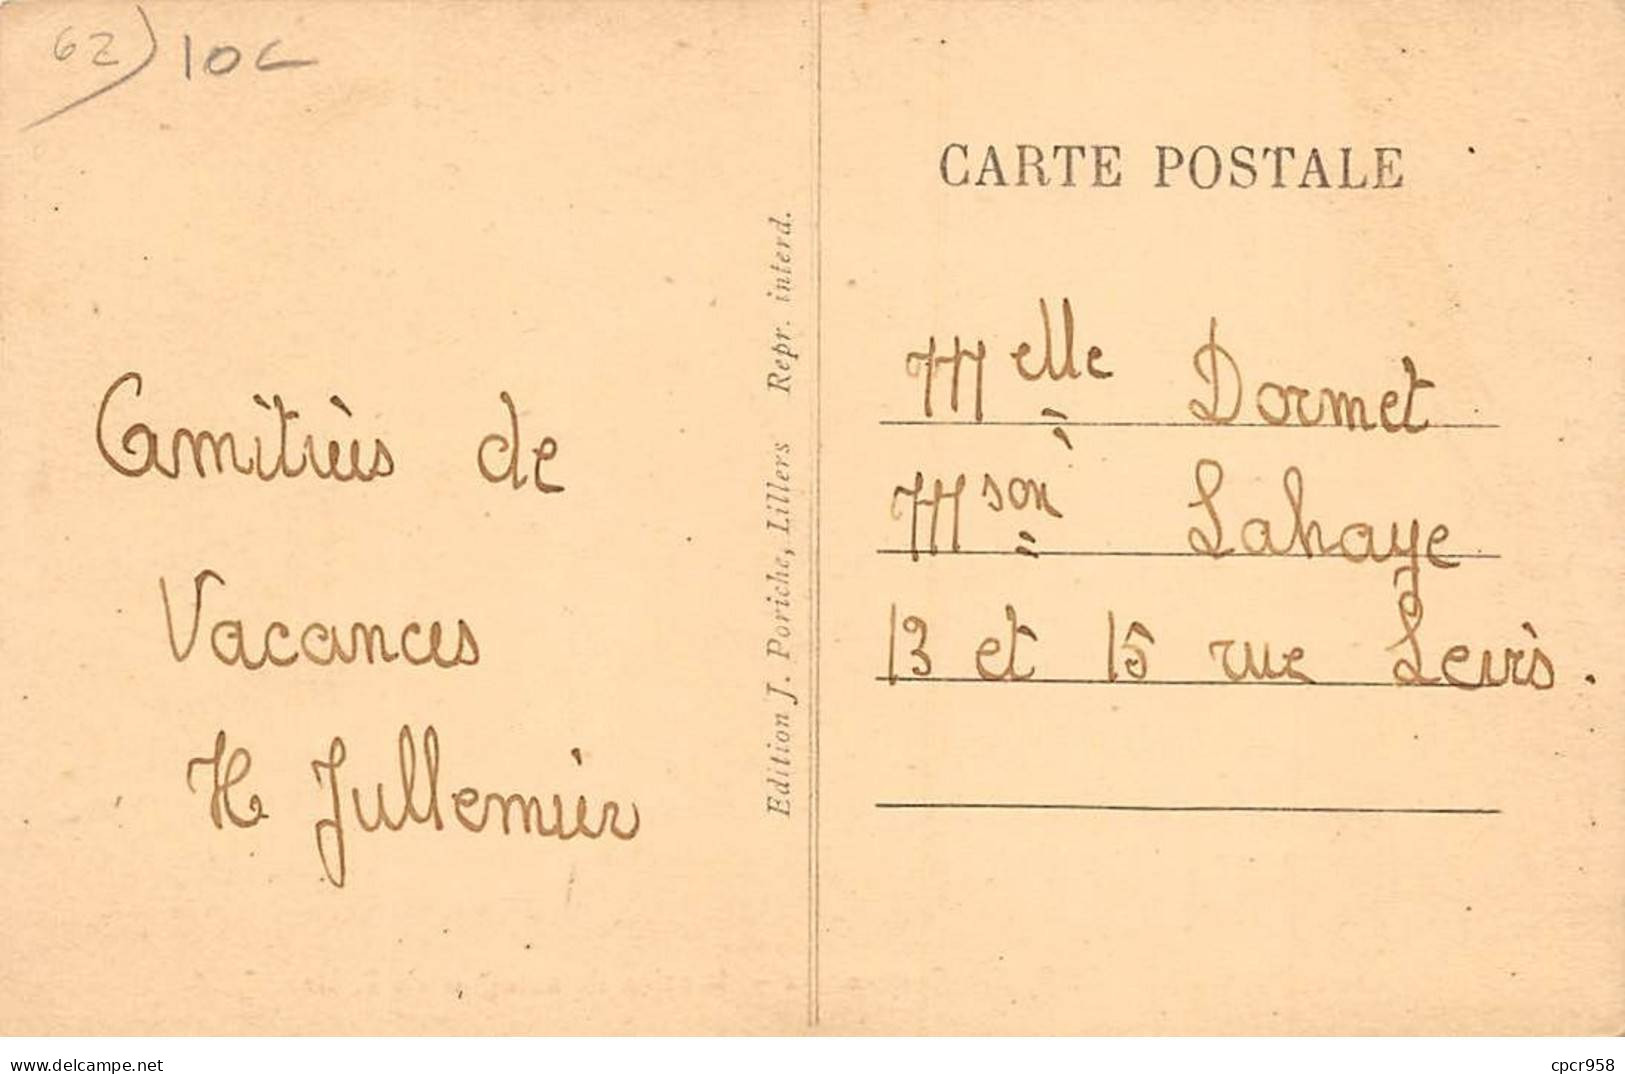 62) 10
CARTE POSTALE
Amitiés de
Vacances
H Jullemier
Edition J. Poriche, Lillers Repr. interd.
Melle Dormet
Mson Lahaye
13 et 15 rue
delcampe.net
cpcr958